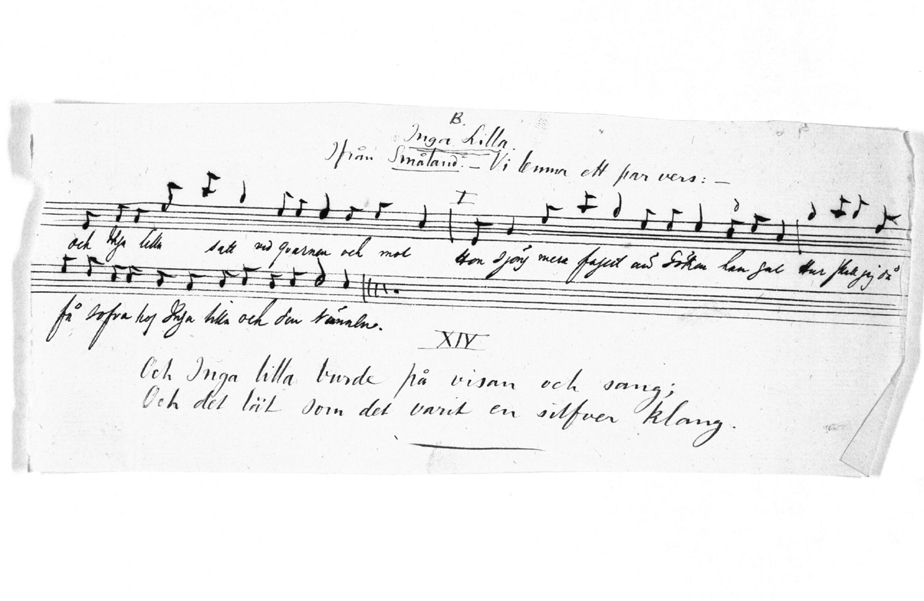 B.
Inga Lilla.
Ifrån Småland. — Vi lemna ett par vers: —
I
och Inga lilla satt vid quarnen och mol Hon Sjöng mera än Göken han gal Hur skall jag då
få sofva hos Inga lilla och den
XIV
Och Inga lilla burde på visan och sang;
Och det lät som det varit en silfver klang.